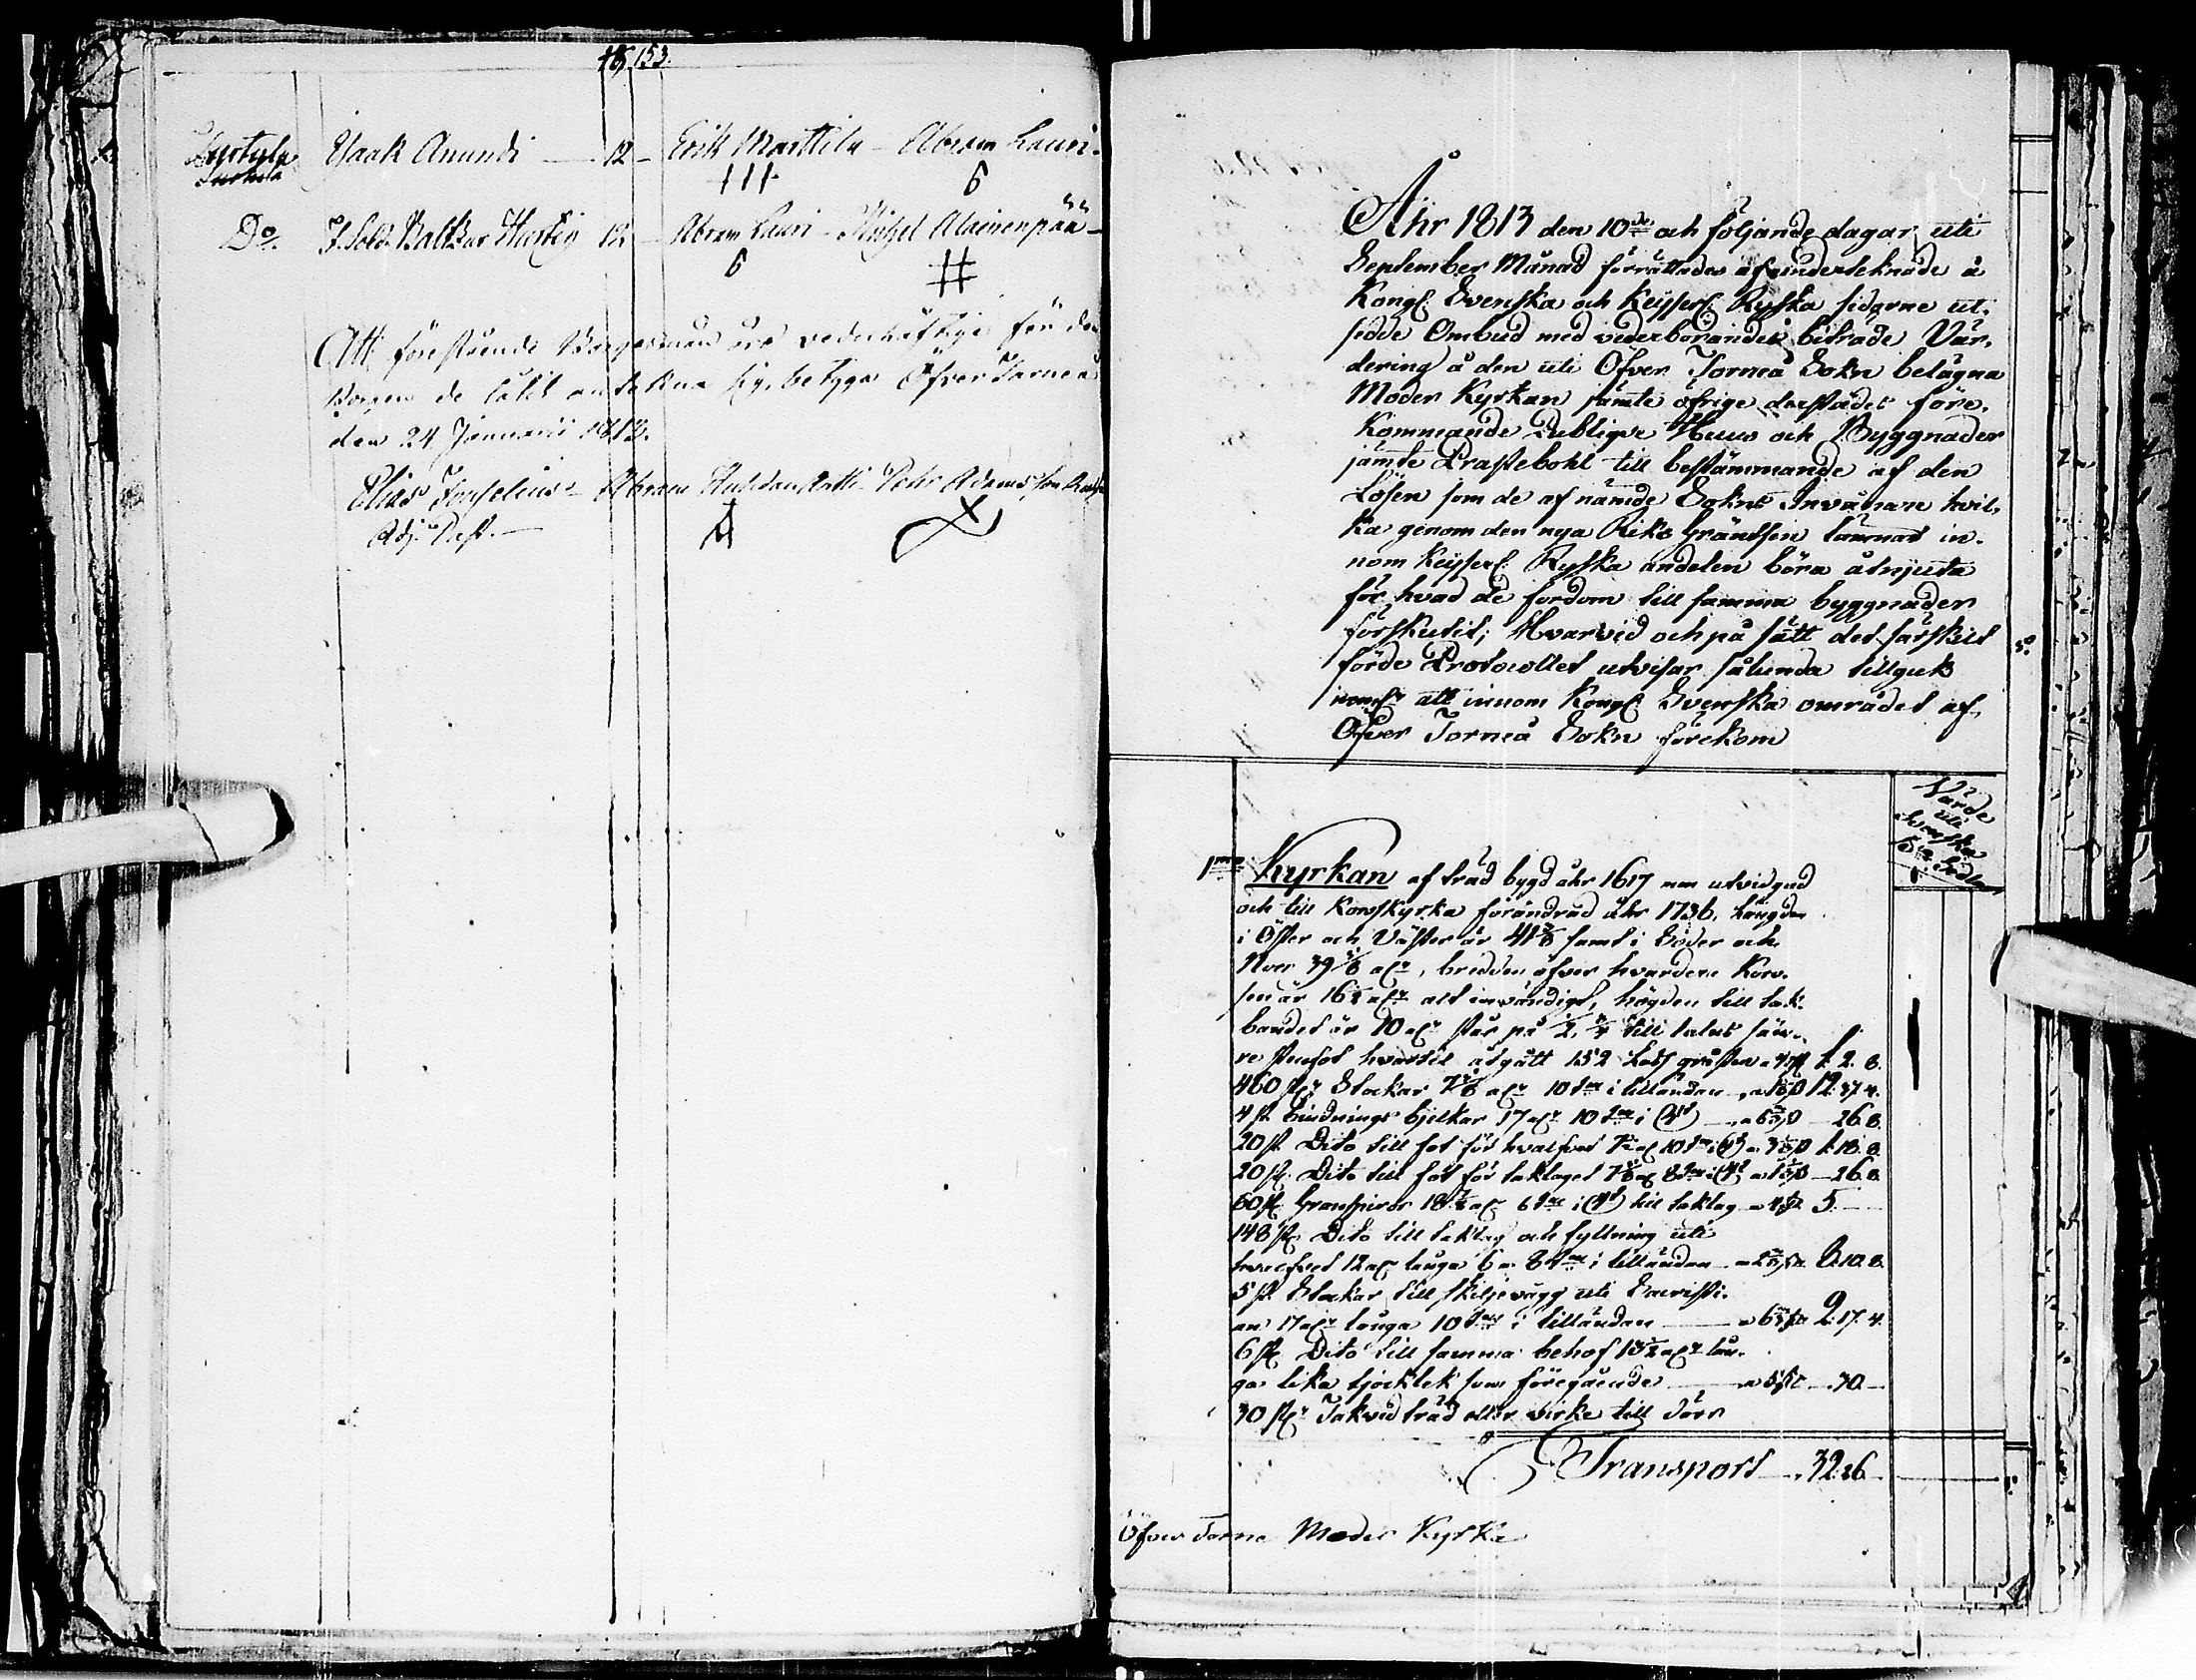 153.
Isaak Anundi — 12 — Erik Marttila — Abram Lauri.
Do. f. Sold. Baltzar Hurtig 12 — Abram Lauri — Michel Alainenpää —
Att förestående Borgesmän äro vederhäftige för den
Borgen de låtit anteckna sig, betyga Öfver Torneå
den 24 Januarii 1813.
Elias Abram Antti Petr Adamsson
Adj. Past. —
Åhr 1813 den 10de och följande dagar uti
September Månad förrättades af undertecknade å
Kongl. Svenska och Keijserl. Ryska sidorne ut-
sedde Ombud med vederbörandes biträde Vär-
dering å den uti Öfver Torneå Sokn belägna
Moder Kyrkan jämte öfrige derstädes före-
kommande Publique Huus och Byggnader
jämte Prästebohl till bestämmande af den
Lösen som de af nämde Sokns Invånare hvil-
ka genom den nya Riks Gräntsen lämnas in-
nom Keijserl. Ryska andelen böra åtnjuta
för hvad de fordom till samma byggnader
förskutit; Hvarvid och på sätt det särskilt
förde Protocollet utvisar sålunda tillgick
neml. att innom Kongl. Svenska området af
Öfver Torneå Sokn förekom
Värde
uti
Svenska
1mo Kyrkan af träd bygd åhr 1617 men utvidgad
och till Korskyrka förändrad åhr 1736. Längden
i Öster och Väster är 41 3/8 samt i Söder och
Norr 39 3/8 alr, bredden öfver hvardera Kors-
sen är 16 1/2 alr alt invändigt, högden till tak-
bandet är 10 alr står på 1/2, 3/4 till
re stenfot hvartil åtgått 152 Lass gråsten 2. 8.
460 st. Stockar 7 alr 10 tum i lilländan 12. 37. 4.
4 st. bindnings bjelkar 17 alr 10 tum i — 26. 8.
20 st. Dito till fot för hvalfvet 10 tum 1. 18. 8.
20 st. Dito till fot för taklaget 8 tum — 26. 8.
60 st. Granspiror 18 alr 6 tum i till taklag 5. —
148 st. Dito till taklag och fyllning uti
hvalfvet 12 alr långa 6 a 8 tum i lilländan 8. 10. 8.
5 st. Stockar till skiljevägg uti Sacristi-
an 17 alr långa 10 tum i lilländan — 2. 17. 4.
6 st. Dito till samma behof 13 1/2 alr lån-
ga lika tjocklek som föregående — 30 —
30 st. Takved träd eller virke till dörr
Transport — 32. 26
Öfver Torne Moder Kyrka